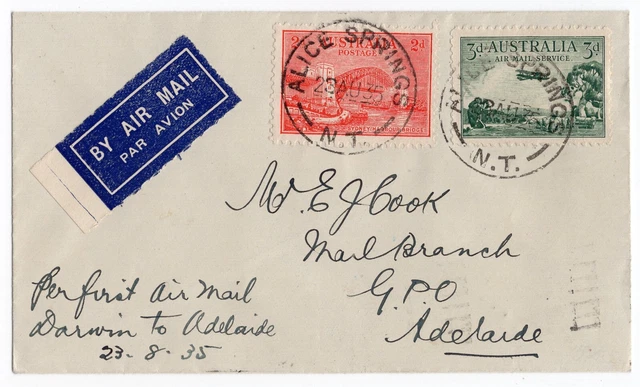 BY AIR MAIL
PAR AVION
2d AUSTRALIA 2d
POSTAGE
SYDNEY HARBOUR BRIDGE
ALICE SPRINGS
23AU35
N.T.
3d AUSTRALIA 3d
AIR MAIL SERVICE
ALICE SPRINGS
23AU35
N.T.
Mr E J Cook
Mail Branch
G.P.O
Adelaide
Per first Air Mail
Darwin to Adelaide
23-8-35